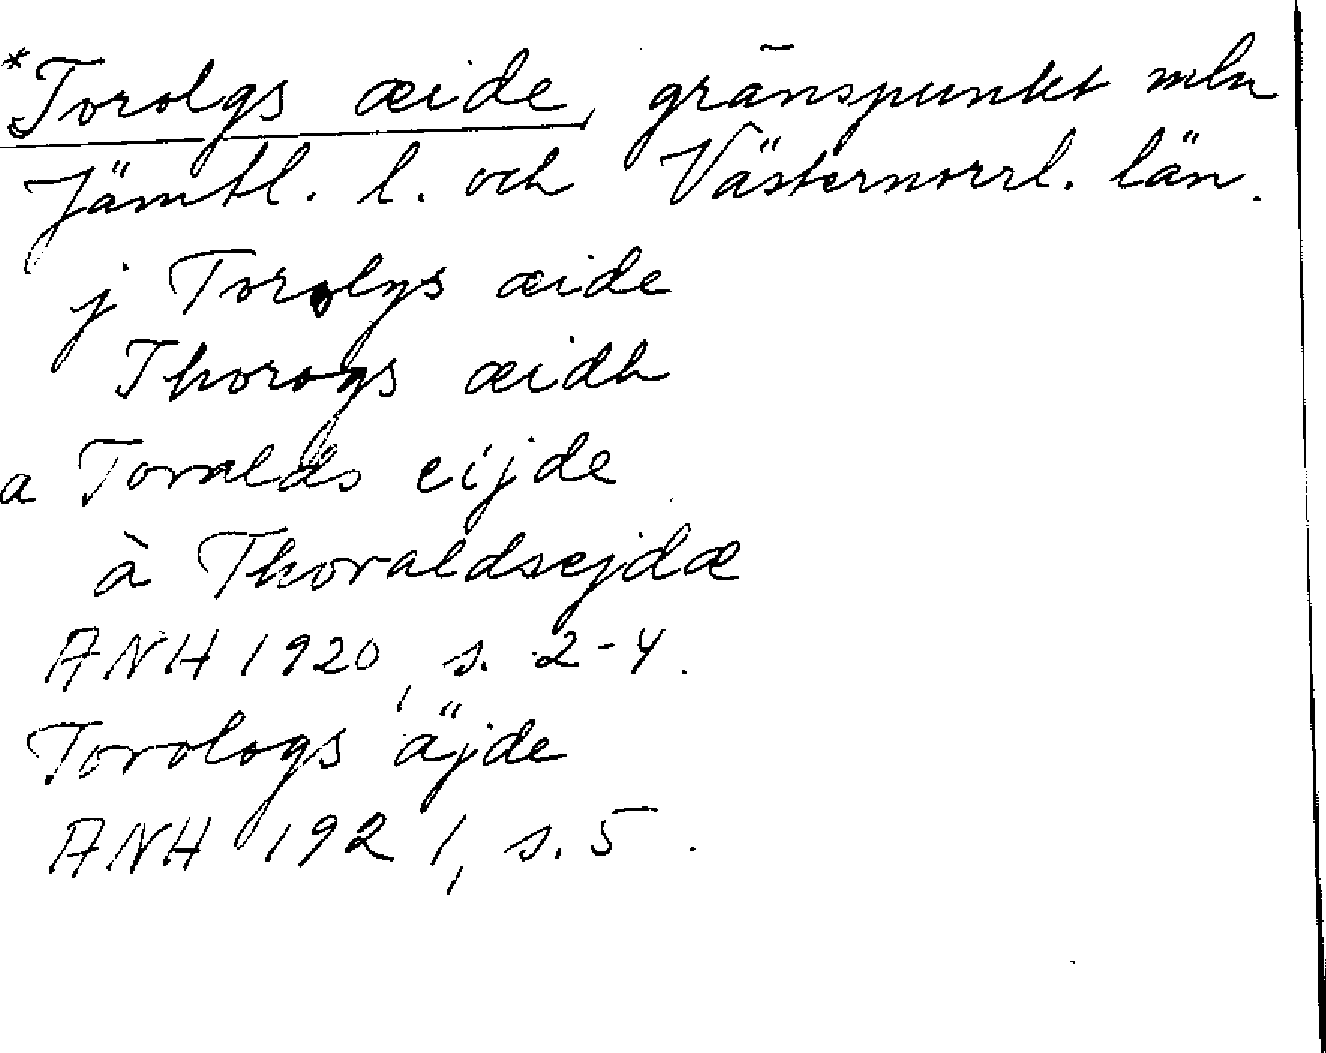 *Torolgs æide, gränspunkt mln
Jämtl. l. och Västernorrl. län.
j Torolgs æide
Thorogs æidh
a Toralds eijde
à Thoraldsejdæ
ANH 1920, s. 2-4.
Torologs äjde
ANH 1921, s. 5.